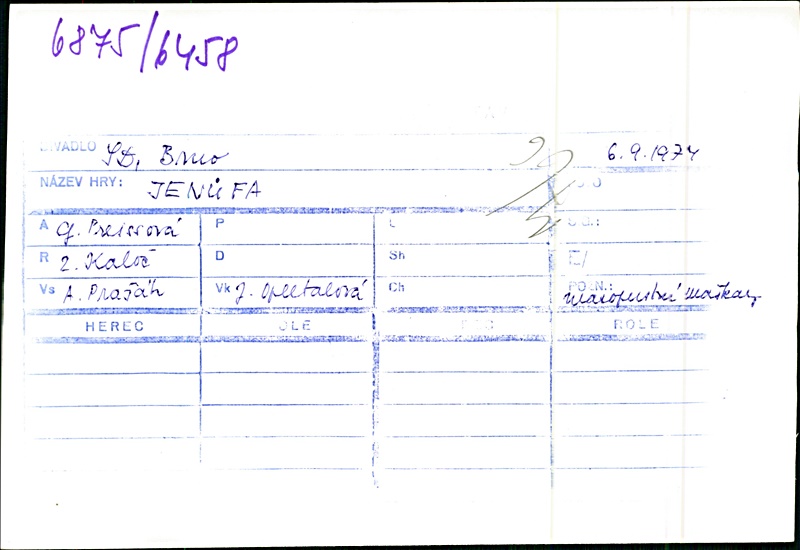 6875/6458
DIVADLO SD, Brno 6.9.1974
NÁZEV HRY: JENŮFA
A G. Preissová P L
R Z. Kaloč D Sh E/
Vs A. Pražák Vk J. Opletalová Ch POZN.:
masopustní maškary
HEREC ROLE ROLE